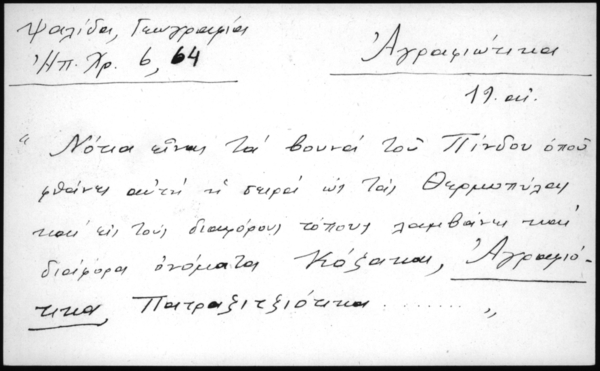 Ψαλίδα, Γεωγραφία
Ἠπ. Χρ. 6, 64
Ἀγραφιώτικα
19. αἰ.
“ Νότια εἶναι τὰ βουνὰ τοῦ Πίνδου ὁποῦ
φθάνει αὐτὴ ἡ σειρὰ ὡς τὰς Θερμοπύλας
καὶ εἰς τοὺς διαφόρους τόπους λαμβάνει καὶ
διάφορα ὀνόματα Κόζακας, Ἀγραφιό-
τικα, Πατραξιτζιότικα ....... „